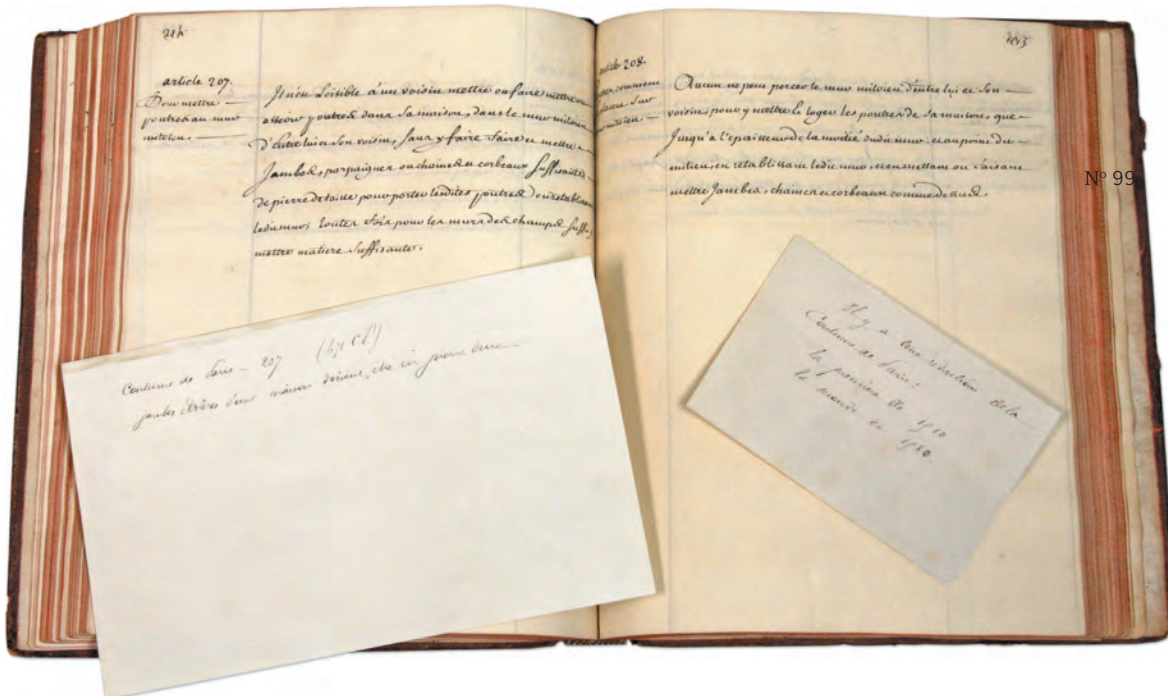 214.
article 207.
Pour mettre
poutres au mur
mitoien.
Il n'est Loisible a un voisin mettre ou faire mettre
asseoir poutres dans sa maison, dans le mur mitoien
D'Entre lui et Son voisin, Sans y faire faire et mettre
Jambes, parpaignes ou chaines et corbeaux Suffisants
de pierre de taille pour porter lesdites poutres en retablissant
ledit mur toutes fois pour les murs des champs Suffit
mettre matiere Suffisante.
215
article 208.
Sur
mitoien.
Aucun ne peut percer le mur mitoien d'entre lui et Son
voisin, pour y mettre et loger les poutres de sa maison, que
Jusqu'a l'epaisseur de la moitié dudit mur, et au point du
milieu, en retablissant ledit mur, et en mettant ou faisant
mettre Jambes, chaines et corbeaux comme dessus.
N° 99
Coutume de Paris – 207
jambes étrières d'une maison pierre dure
Il y a deux rédactions de la
Coutume de Paris:
la première de 1510
la seconde de 1580.